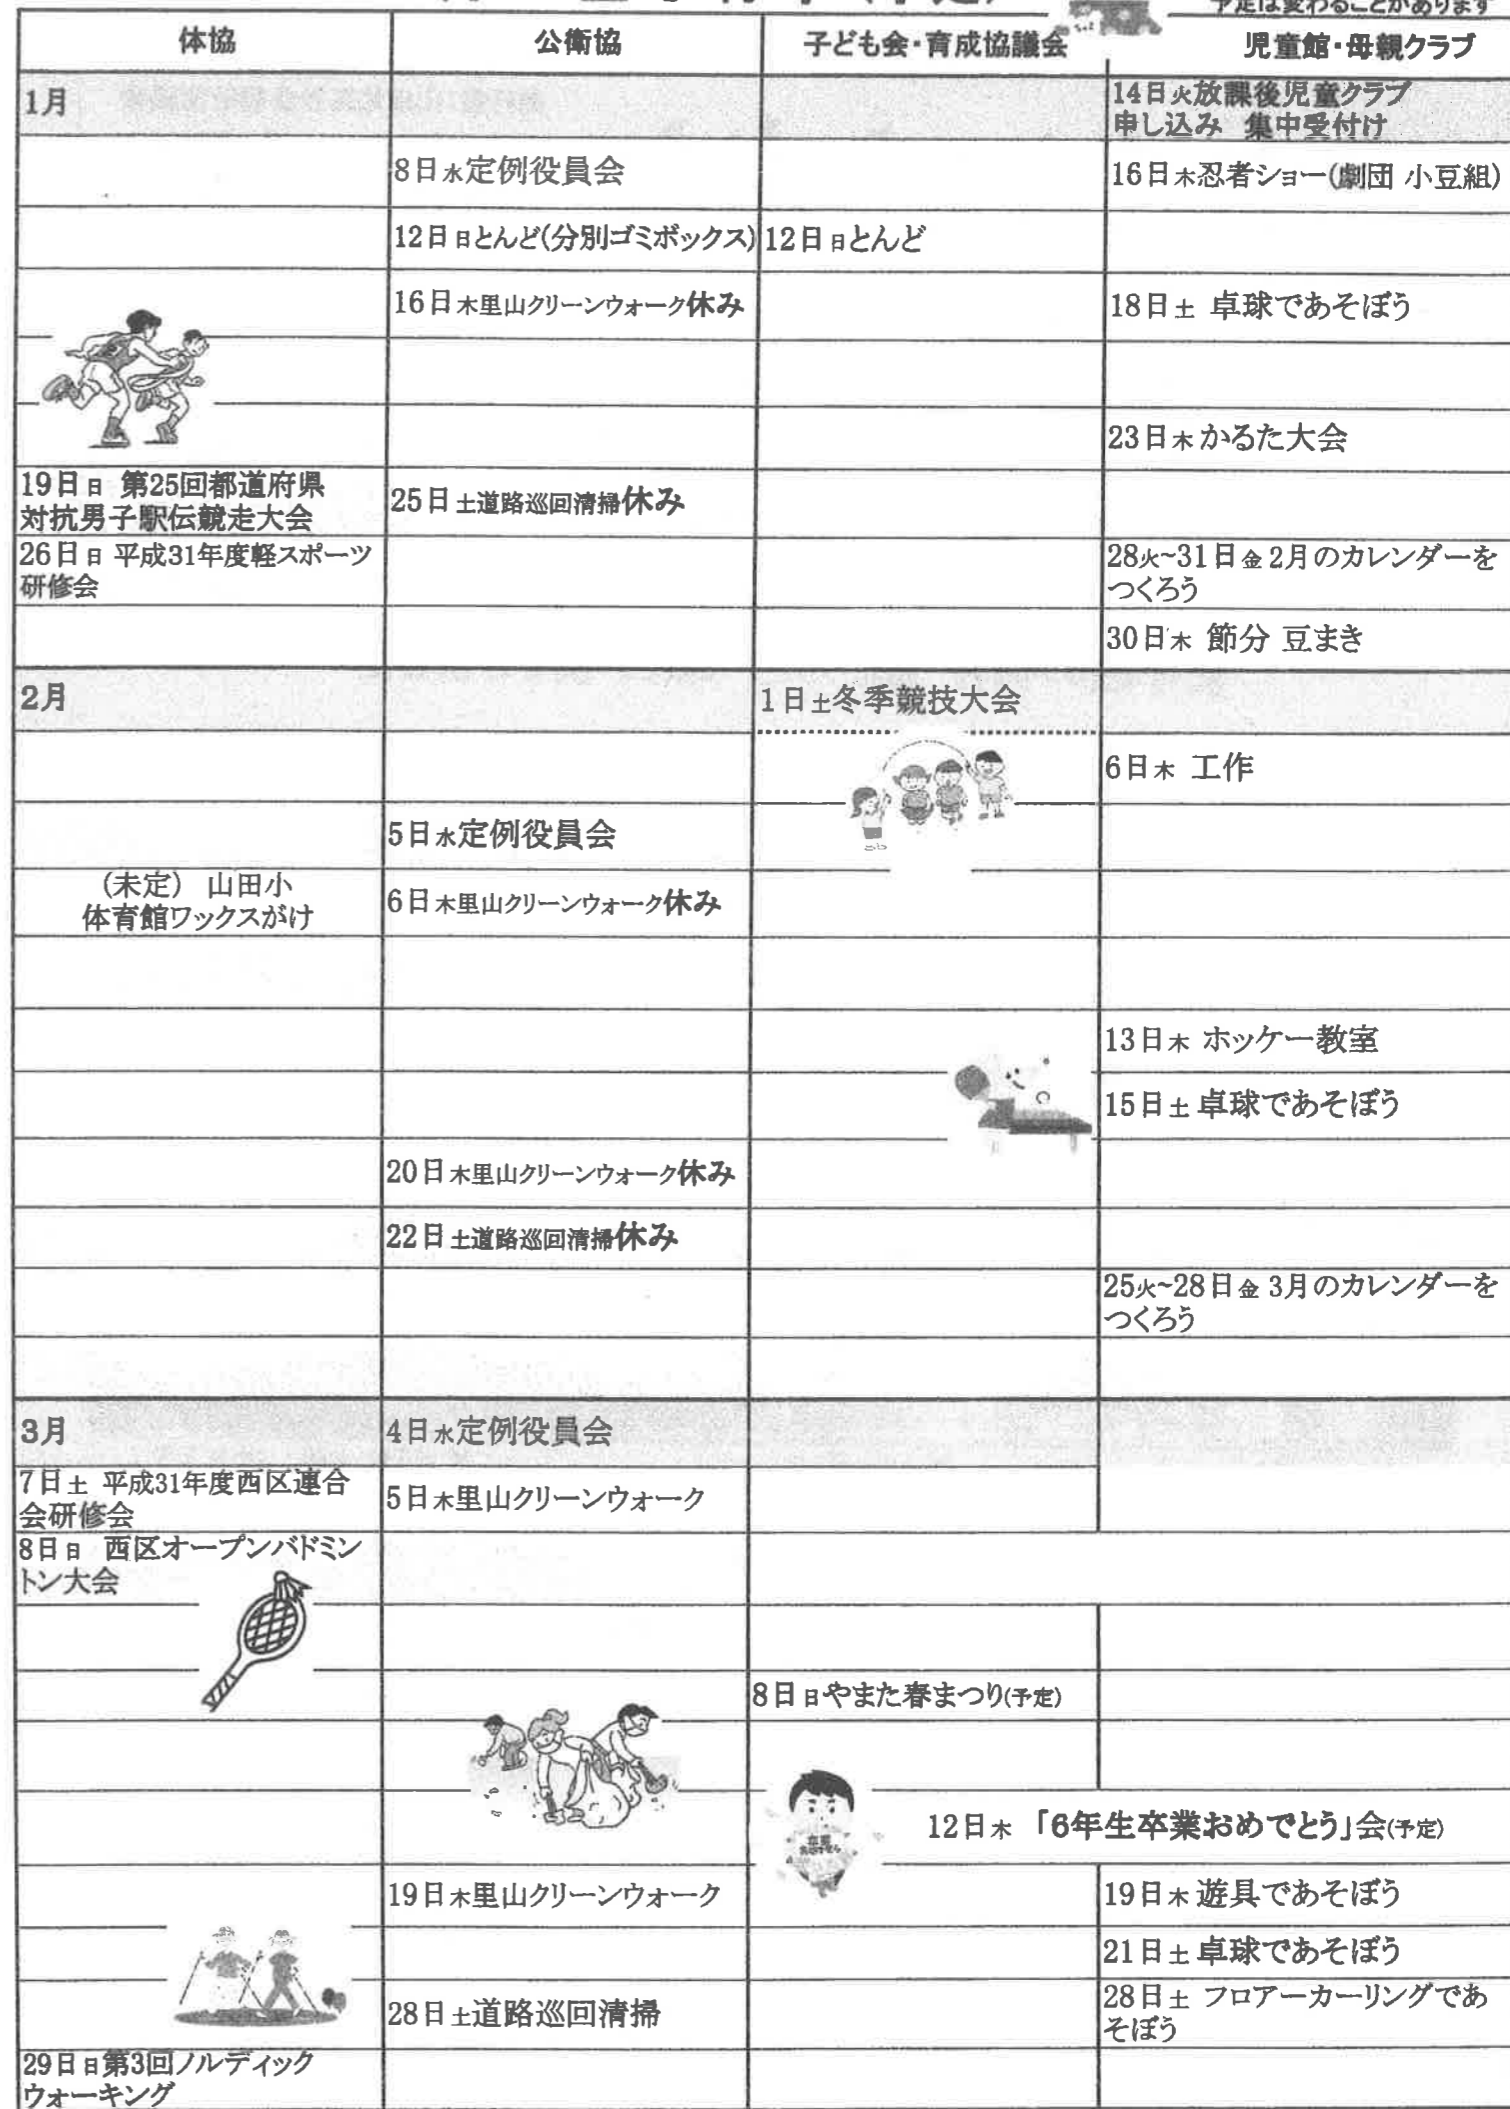 予定は変わることがあります
体協 公衛協 子ども会・育成協議会 児童館・母親クラブ
1月 14日火放課後児童クラブ
申し込み 集中受付け
8日水定例役員会 16日木忍者ショー(劇団 小豆組)
12日日とんど(分別ゴミボックス) 12日日とんど
16日木里山クリーンウォーク休み 18日土 卓球であそぼう
23日木かるた大会
19日日 第25回都道府県
対抗男子駅伝競走大会
25日土道路巡回清掃休み
26日日 平成31年度軽スポーツ
研修会
28火~31日金 2月のカレンダーを
つくろう
30日木 節分 豆まき
2月 1日土冬季競技大会
6日木 工作
5日水定例役員会
(未定) 山田小
体育館ワックスがけ
6日木里山クリーンウォーク休み
13日木 ホッケー教室
15日土 卓球であそぼう
20日木里山クリーンウォーク休み
22日土道路巡回清掃休み
25火~28日金 3月のカレンダーを
つくろう
3月 4日水定例役員会
7日土 平成31年度西区連合
会研修会
5日木里山クリーンウォーク
8日日 西区オープンバドミン
トン大会
8日日やまた春まつり(予定)
12日木 「6年生卒業おめでとう」会(予定)
19日木里山クリーンウォーク 19日木 遊具であそぼう
21日土 卓球であそぼう
28日土道路巡回清掃
28日土 フロアーカーリングであ
そぼう
29日日第3回ノルディック
ウォーキング